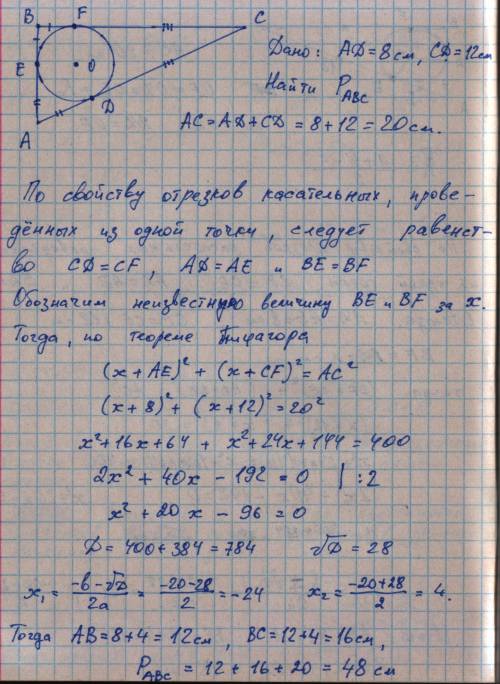 B F C
E O
D
A
Дано: AD = 8 см, CD = 12 см
Найти P_ABC
AC = AD + CD = 8 + 12 = 20 см.
По свойству отрезков касательных, прове-
дённых из одной точки, следует равенст-
во CD = CF, AD = AE и BE = BF
Обозначим неизвестную величину BE и BF за x.
Тогда, по теореме Пифагора
(x + AE)² + (x + CF)² = AC²
(x + 8)² + (x + 12)² = 20²
x² + 16x + 64 + x² + 24x + 144 = 400
2x² + 40x - 192 = 0 | :2
x² + 20x - 96 = 0
D = 400 + 384 = 784 √D = 28
x₁ = (-b - √D)/2a = (-20 - 28)/2 = -24 x₂ = (-20 + 28)/2 = 4.
Тогда AB = 8 + 4 = 12 см, BC = 12 + 4 = 16 см,
P_ABC = 12 + 16 + 20 = 48 см